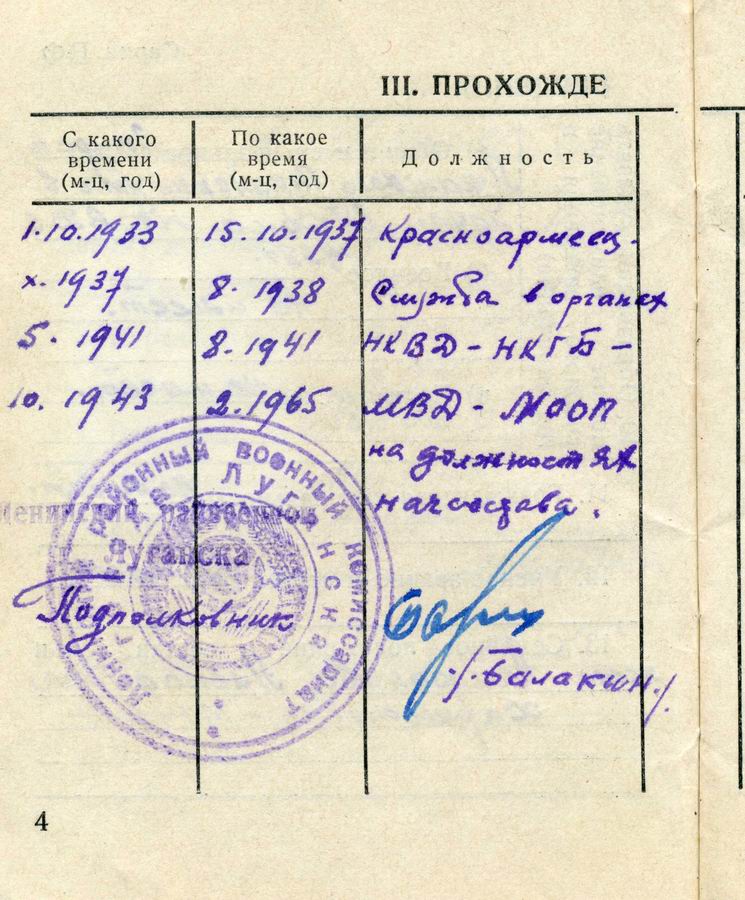 III. ПРОХОЖДЕ
С какого времени (м-ц, год)
По какое время (м-ц, год)
Должность
1.10.1933 15.10.1937 Красноармеец.
x. 1937 8. 1938 Служба в органах
5. 1941 8. 1941 НКВД - НКГБ -
10. 1943 2. 1965 МВД - МООП
на должностях
начсостава.
районный военный комиссариат
Луганска
Подполковник
/Балакин/
4